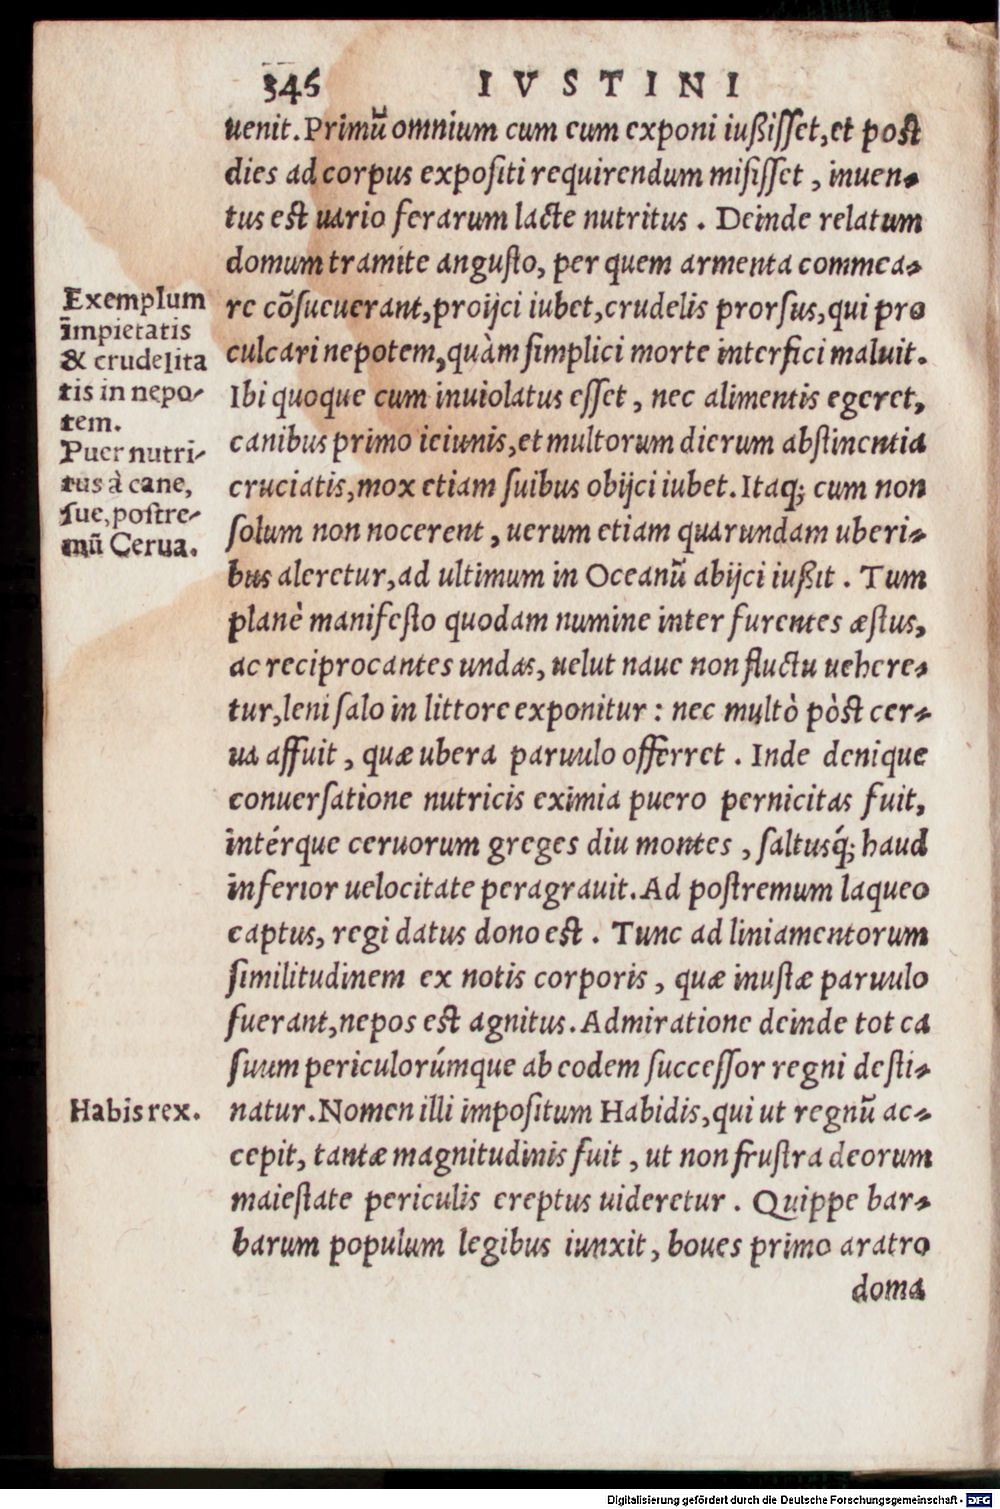 346 IVSTINI
uenit. Primũ omnium cum eum exponi iußiſſet, et poſt
dies ad corpus expoſiti requirendum miſiſſet, inuen-
tus eſt uario ferarum lacte nutritus. Deinde relatum
domum tramite anguſto, per quem armenta commea-
re cõſueuerant, proijci iubet, crudelis prorſus, qui pro
culcari nepotem, quàm ſimplici morte interfici maluit.
Ibi quoque cum inuiolatus eſſet, nec alimentis egeret,
canibus primo ieiunis, et multorum dierum abſtinentia
cruciatis, mox etiam ſuibus obijci iubet. Itaq; cum non
ſolum non nocerent, uerum etiam quarundam uberi-
bus aleretur, ad ultimum in Oceanũ abijci iußit. Tum
planè manifeſto quodam numine inter furentes æſtus,
ac reciprocantes undas, uelut naue non fluctu uehere-
tur, leni ſalo in littore exponitur: nec multò pòſt cer-
ua affuit, quæ ubera paruulo offerret. Inde denique
conuerſatione nutricis eximia puero pernicitas fuit,
intérque ceruorum greges diu montes, ſaltusq́; haud
inferior uelocitate peragrauit. Ad poſtremum laqueo
captus, regi datus dono eſt. Tunc ad liniamentorum
ſimilitudinem ex notis corporis, quæ inuſtæ paruulo
fuerant, nepos eſt agnitus. Admiratione deinde tot ca
ſuum periculorúmque ab eodem ſucceſſor regni deſti-
natur. Nomen illi impoſitum Habidis, qui ut regnũ ac-
cepit, tantæ magnitudinis fuit, ut non fruſtra deorum
maieſtate periculis ereptus uideretur. Quippe bar-
barum populum legibus iunxit, boues primo aratro
doma
Exemplum
impietatis
& crudelita
tis in nepo-
tem.
Puer nutri-
tus à cane,
ſue, poſtre-
mũ Cerua.
Habis rex.
Digitalisierung gefördert durch die Deutsche Forschungsgemeinschaft - DFG